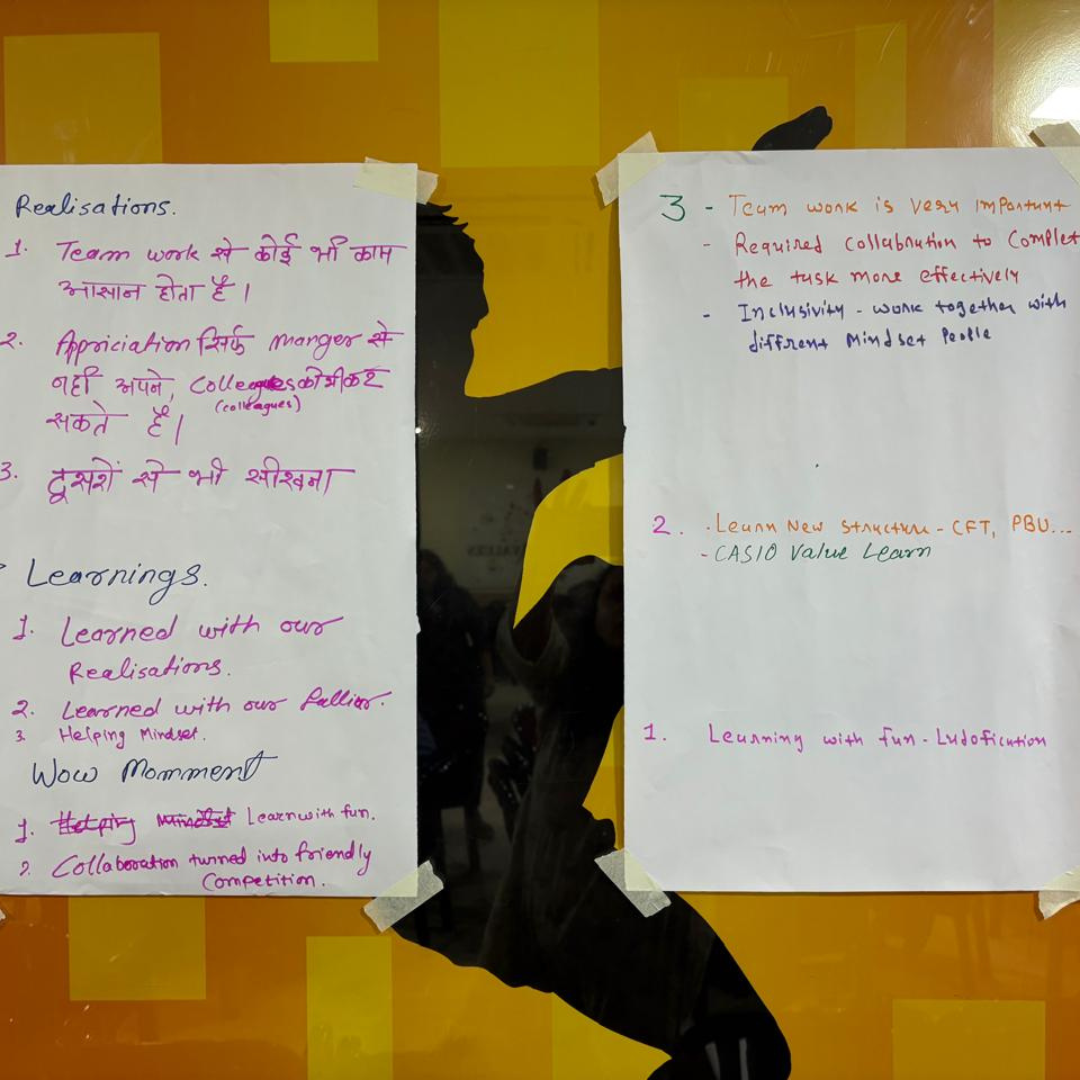 Realisations.
1. Team work से कोई भी काम
आसान होता है।
2. Appriciation सिर्फ manger से
नहीं अपने, Colleagues को भी कर
(colleagues)
सकते हैं।
3. दूसरों से भी सीखना
Learnings.
1. Learned with our
Realisations.
2. Learned with our
3. Helping Mindset.
Wow Momment
1. Helping Mindset Learn with fun.
2. Collaboration turned into friendly
Competition.
3 - Team work is very important
- Required collabration to Complet
the task more effectively
- Inclusivity - work together with
diffrent Mindset People
2. . Learn New Structure - CFT, PBU...
- CASIO Value Learn
1. Learning with fun - Ludofication